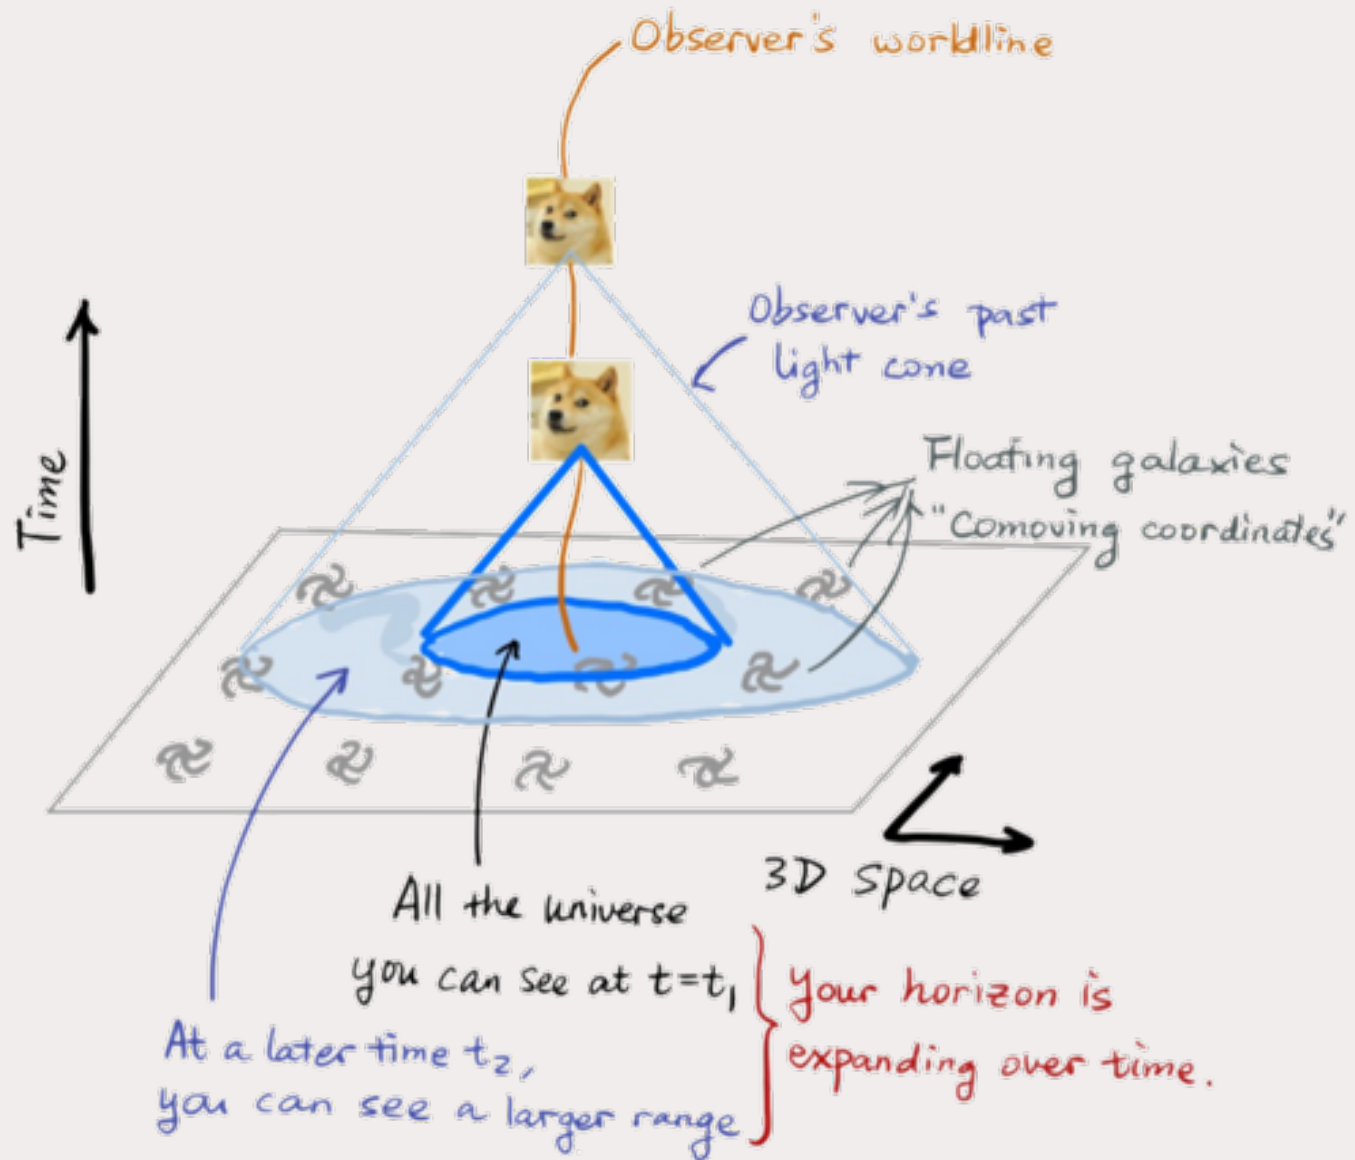 Observer's worldline
Observer's past
light cone
Floating galaxies
"Comoving coordinates"
Time
3D space
All the universe
you can see at t=t₁
At a later time t₂,
you can see a larger range
Your horizon is
expanding over time.